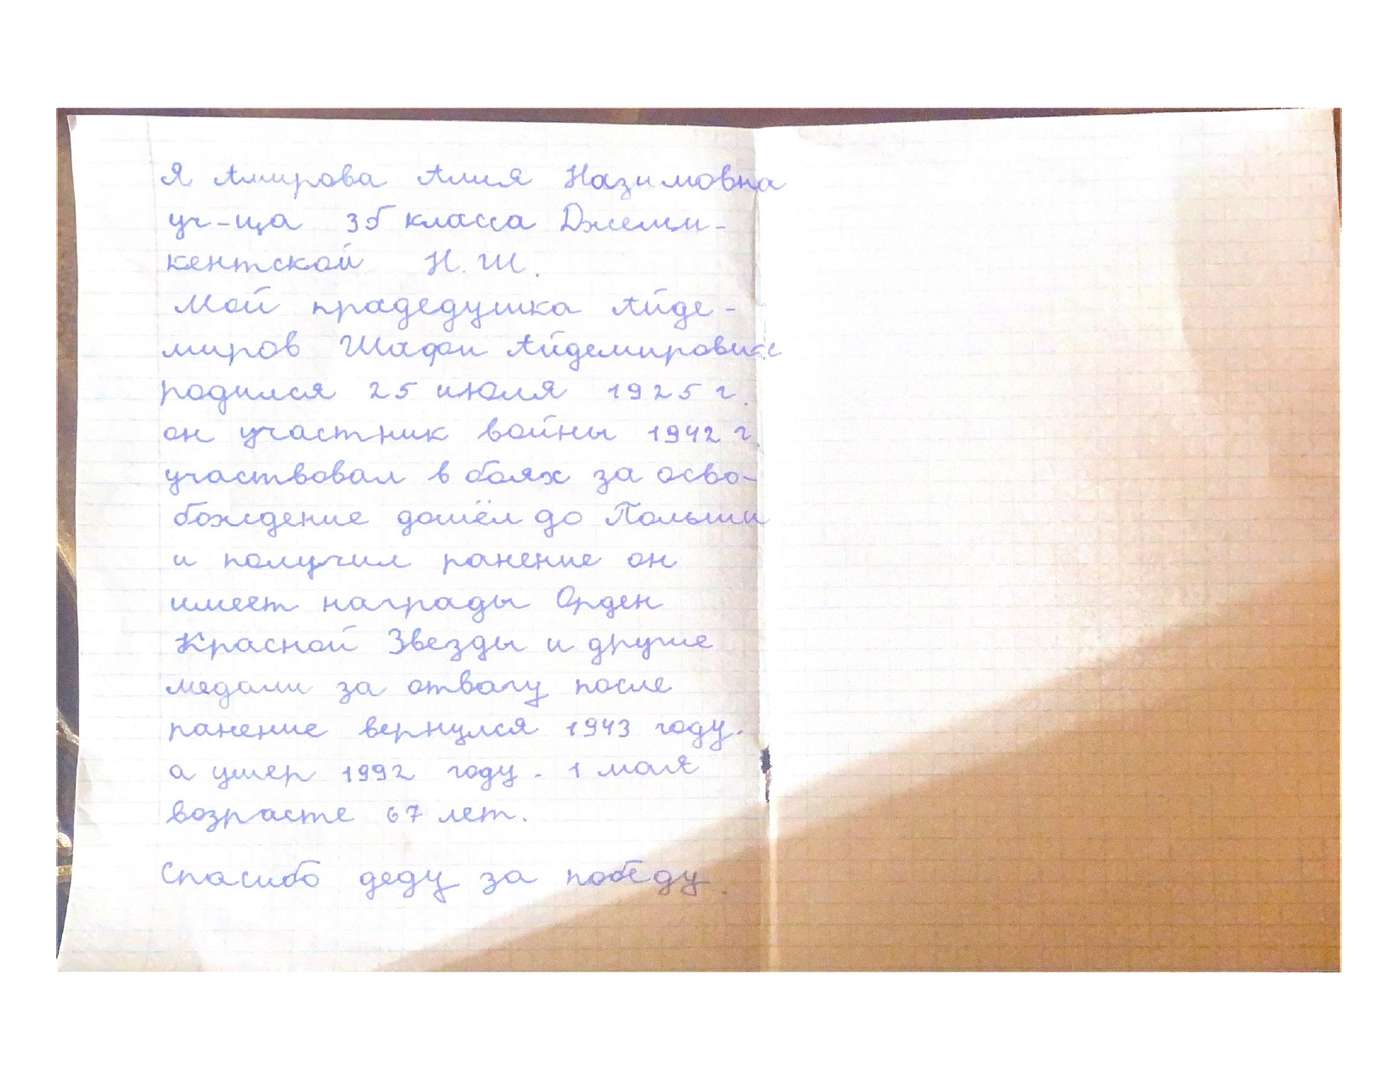 Я Амирова Алия Назимовна
уч-ща 3б класса Джеми-
кентской Н.Ш.
Мой прадедушка Айде-
миров Шафи Айдемирович
родился 25 июля 1925 г.
он участник войны 1942 г.
участвовал в боях за осво-
бождение дошёл до Польши
и получил ранение он
имеет награды Орден
Красной Звезды и другие
медали за отвагу после
ранение вернулся 1943 году.
а умер 1992 году. 1 мая
возрасте 67 лет.
Спасибо деду за победу.